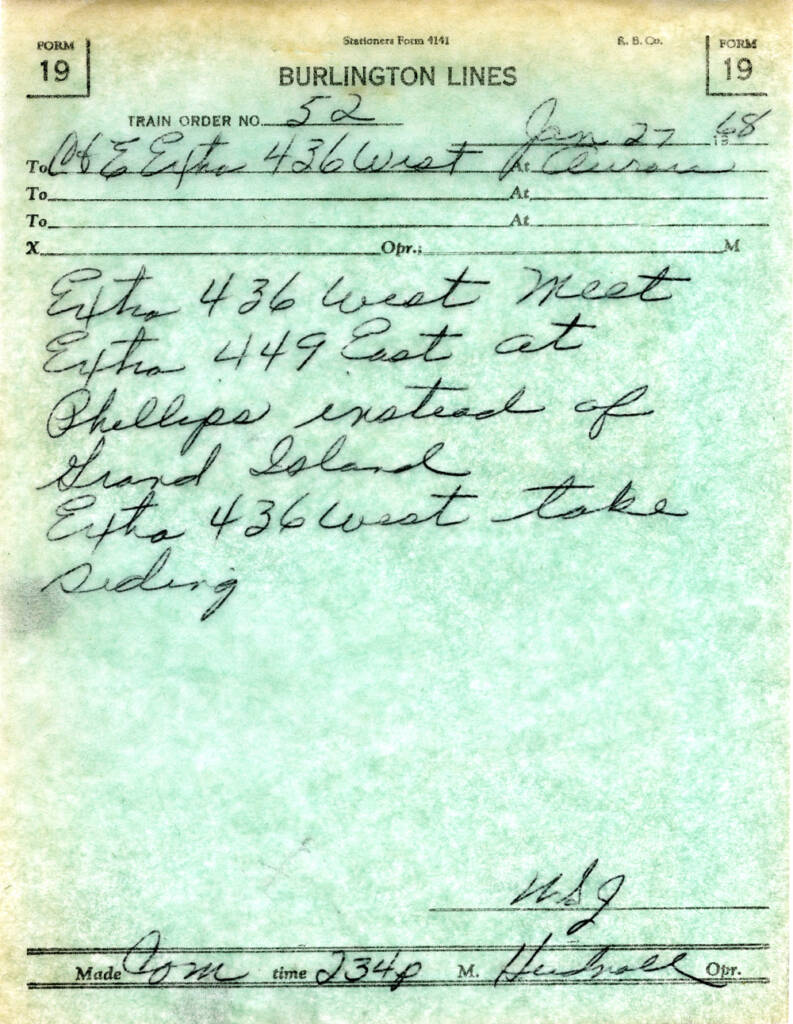 Stationers Form 4141 R. B. Co.
FORM 19 FORM 19
BURLINGTON LINES
TRAIN ORDER NO. 52
Jan 27 1968
To C&E Extra 436 West At Aurora
To At
To At
X Opr.; M
Extra 436 West Meet
Extra 449 East at
Phillips instead of
Grand Island
Extra 436 West take
siding
WSJ
Made Com time 234p M. Opr.